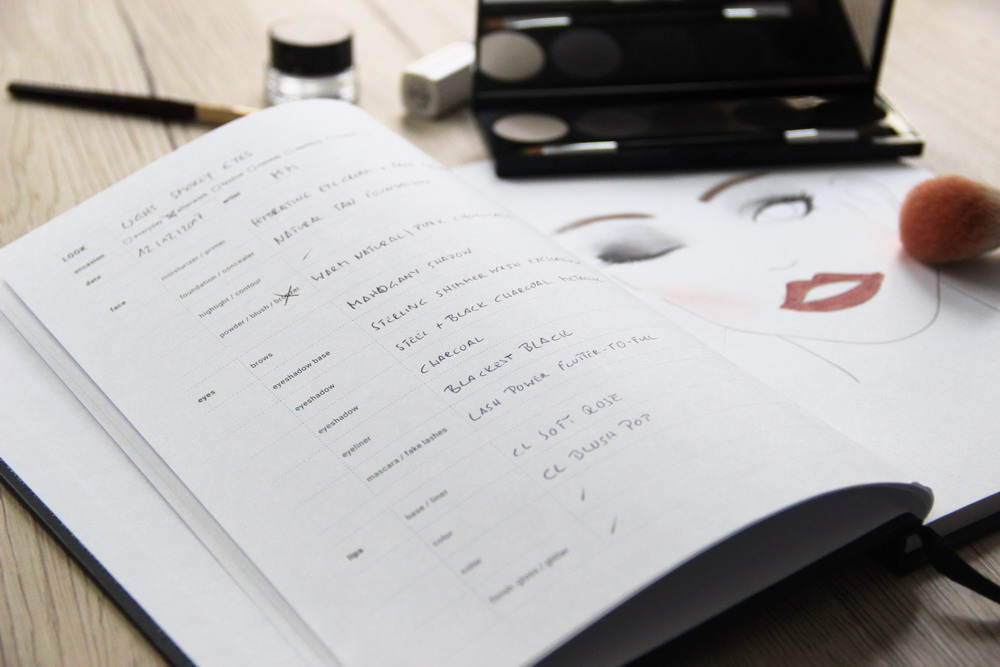 LOOK LIGHT SMOKEY EYES
occasion everyday afterwork
date 12/02/2017 artist MM
face moisturizer / primer HYDRATING EYE CREAM +
foundation / concealer NATURAL TAN FOUNDATION
highlight / contour /
powder / blush / WARM NATURAL | PINK
eyes brows MAHOGANY SHADOW
eyeshadow base STERLING SHIMMER WASH
eyeshadow STEEL + BLACK CHARCOAL
eyeshadow CHARCOAL
eyeliner BLACKEST BLACK
mascara / fake lashes LASH POWER FLUTTER-TO-FULL
lips base / liner CL SOFT ROSE
color CL BLUSH POP
color /
finish: gloss / glitter /